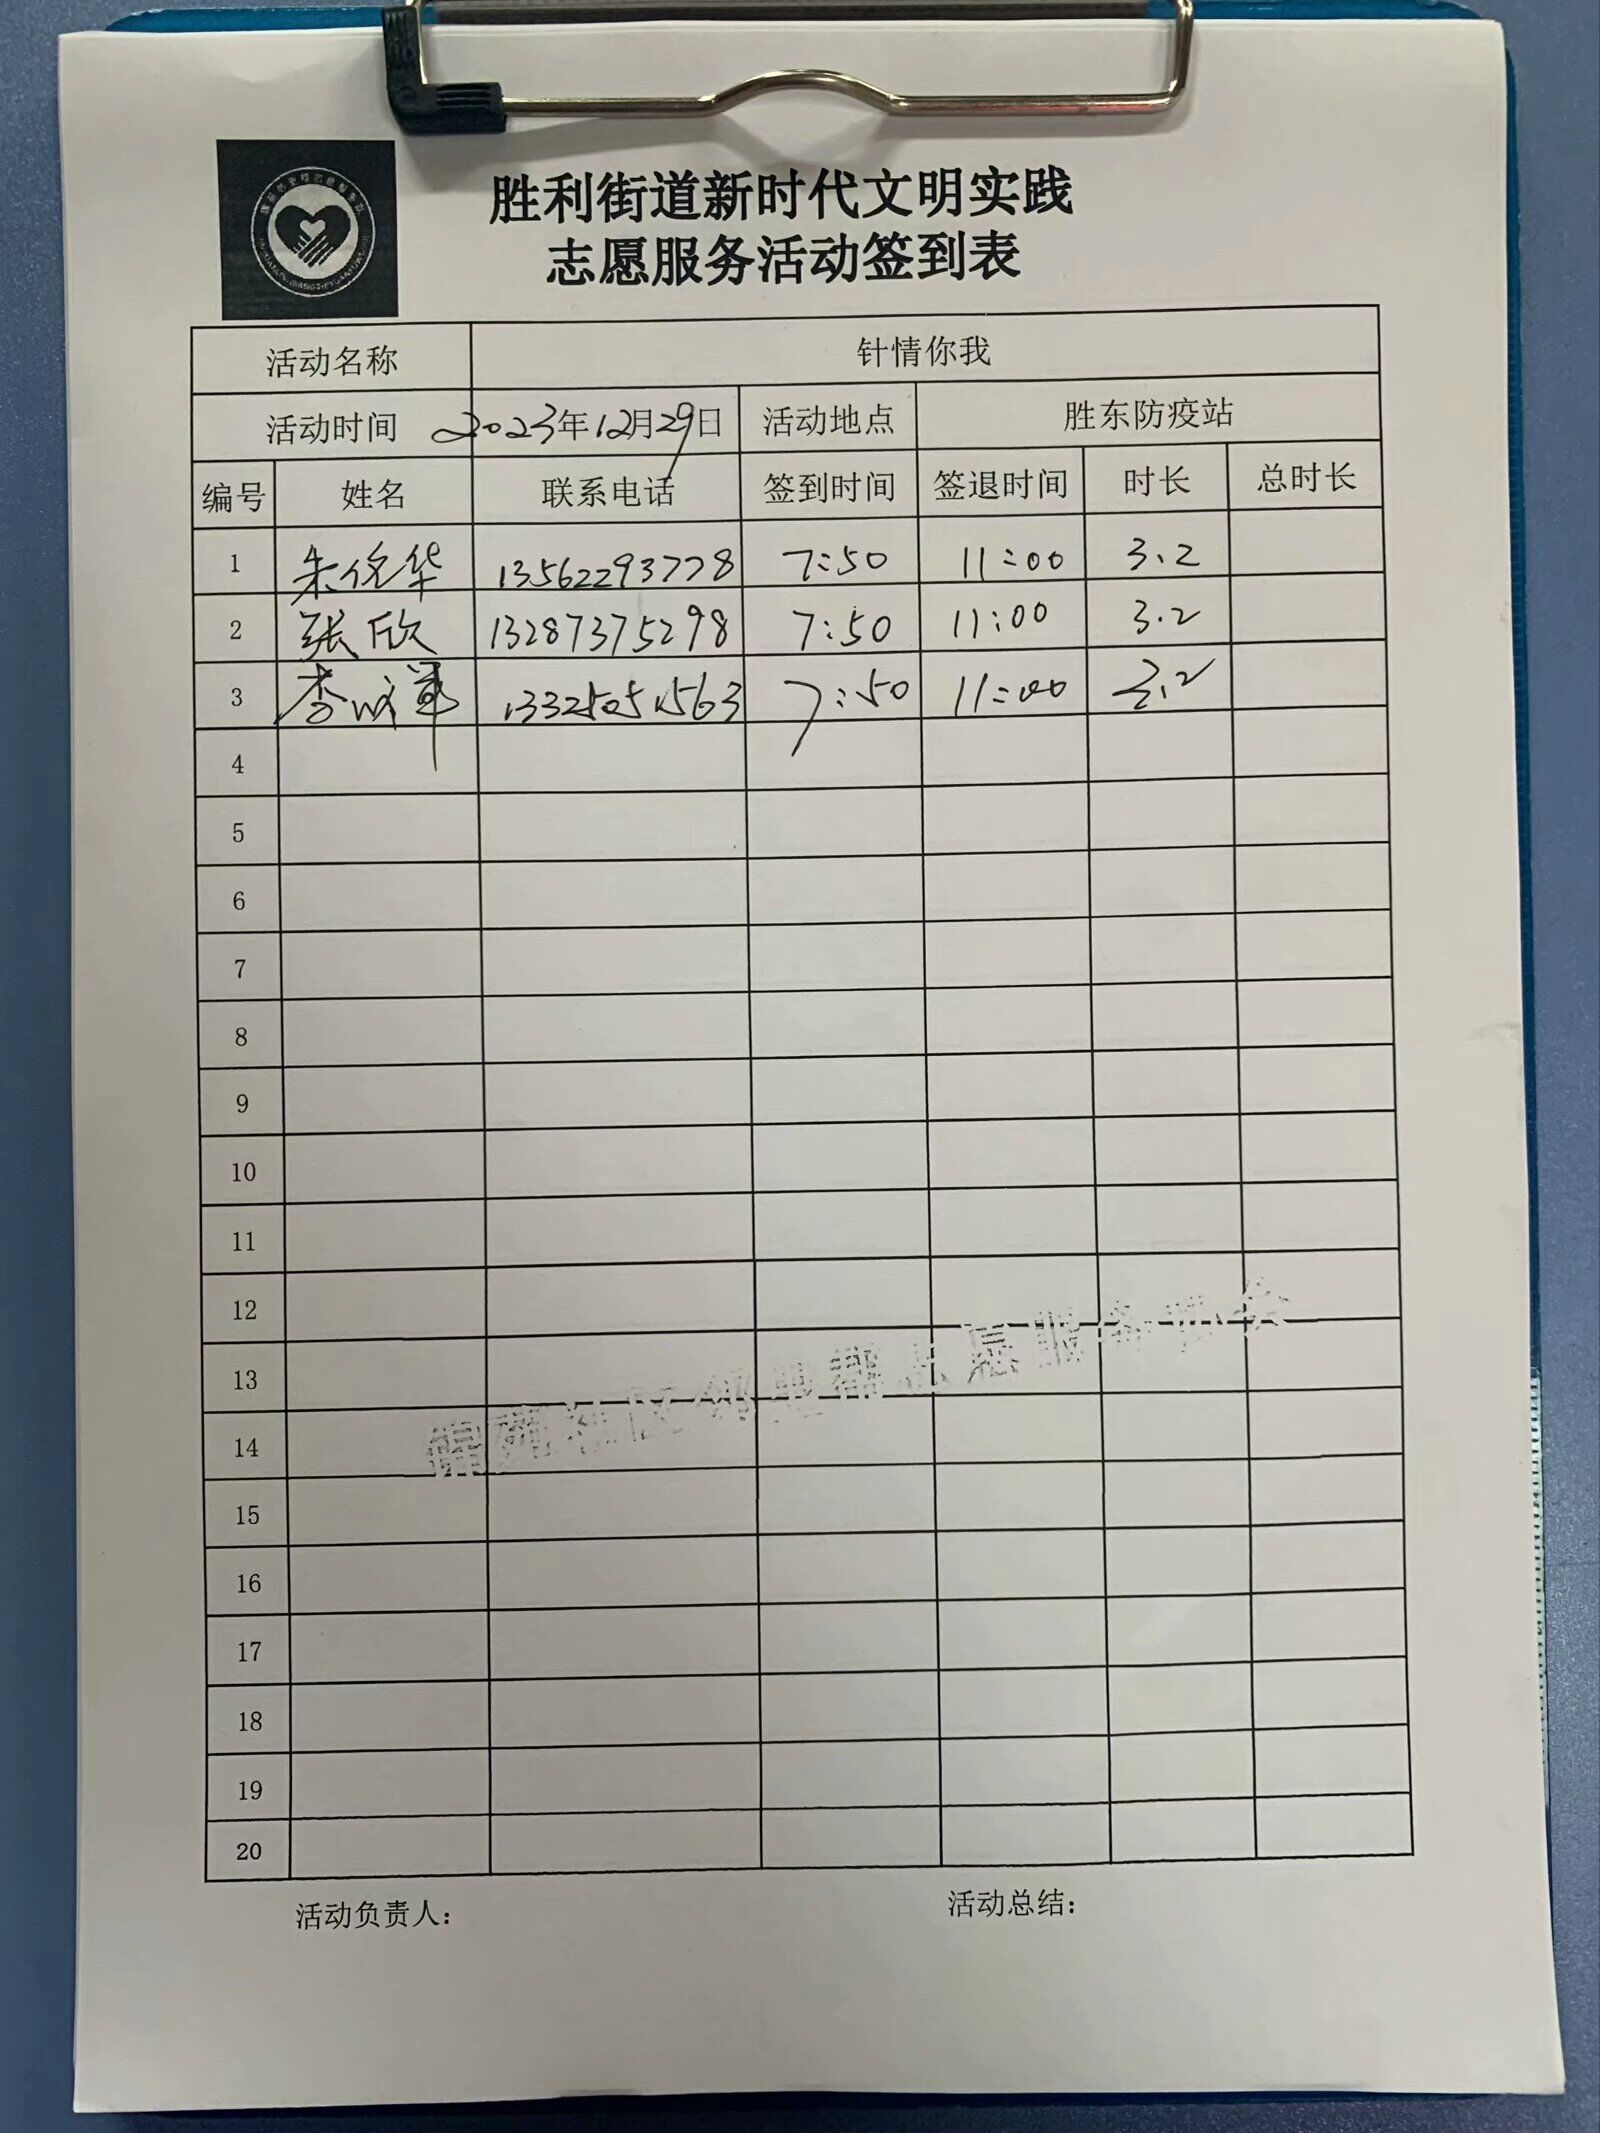 胜利街道新时代文明实践
志愿服务活动签到表
活动名称 针情你我
活动时间 2023年12月29日 活动地点 胜东防疫站
编号 姓名 联系电话 签到时间 签退时间 时长 总时长
1 朱佲华 13562293778 7:50 11:00 3.2
2 张欣 13287375298 7:50 11:00 3.2
3 李成军 13325051563 7:50 11:00 3.2
4
5
6
7
8
9
10
11
12
13
14
15
16
17
18
19
20
活动负责人: 活动总结: